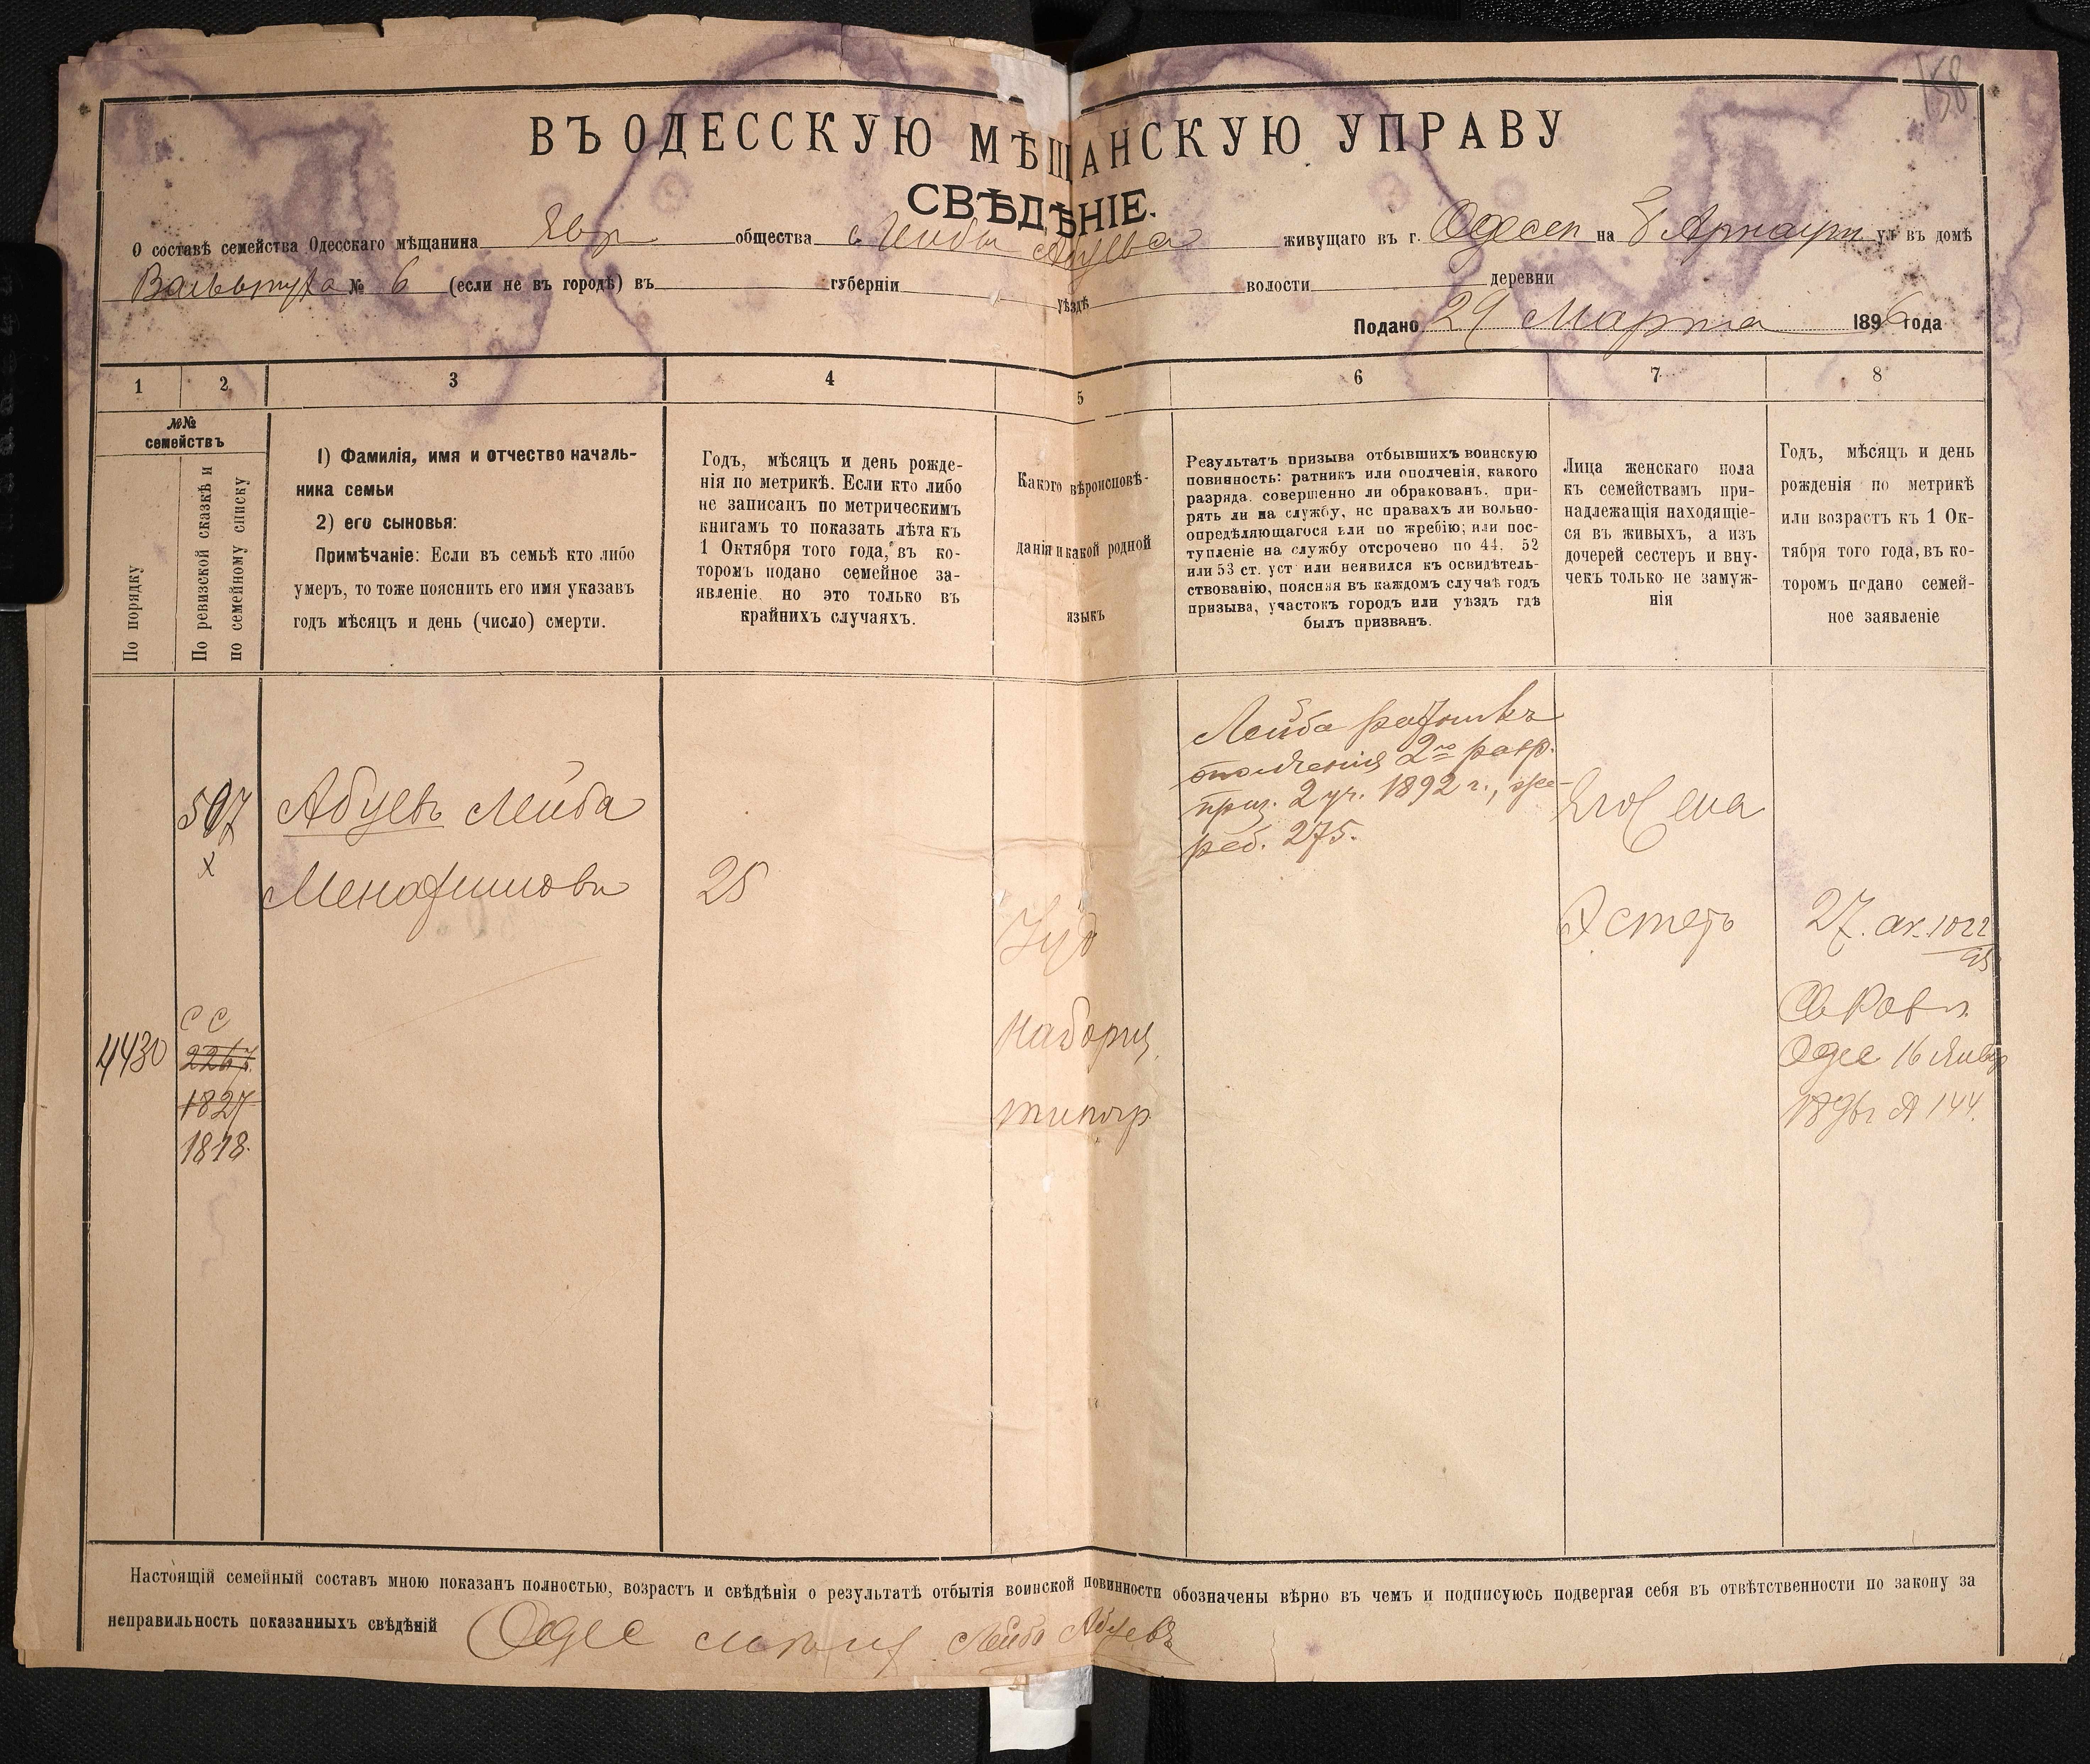 158
ВЪ ОДЕССКУЮ МѢЩАНСКУЮ УПРАВУ
СВѢДѢНІЕ.
О составѣ семейства Одесскаго мѣщанина Евр общества Лейбы Абуева живущаго въ г. Одессѣ на Б Арнаутс ул въ домѣ
№ 6 (если не въ городѣ) въ губерніи уѣздѣ волости деревни
Подано 29 Марта 1896 года
1 2 3 4 5 6 7 8
№№
семействъ
По порядку
По ревизской сказкѣ и
по семейному списку
1) Фамилія, имя и отчество началь-
ника семьи
2) его сыновья:
Примѣчаніе: Если въ семьѣ кто либо
умеръ, то тоже пояснить его имя указавъ
годъ мѣсяцъ и день (число) смерти.
Годъ, мѣсяцъ и день рожде-
нія по метрикѣ. Если кто либо
не записанъ по метрическимъ
книгамъ то показать лѣта къ
1 Октября того года, въ ко-
торомъ подано семейное за-
явленіе но это только въ
крайнихъ случаяхъ.
Какого вѣроисповѣ-
данія и какой родной
языкъ
Результатъ призыва отбывшихъ воинскую
повинность: ратникъ или ополченія, какого
разряда. совершенно ли обракованъ. при-
рять ли на службу, нс правахъ ли вольно-
опредѣляющагося или по жребію; или пос-
тупленіе на службу отсрочено по 44. 52
или 53 ст. уст или неявился къ освидѣтель-
ствованію, поясняя въ каждомъ случаѣ годъ
призыва, участокъ городъ или уѣздъ гдѣ
былъ призванъ.
Лица женскаго пола
къ семействамъ при-
надлежащія находящіе-
ся въ живыхъ, а изъ
дочерей сестеръ и вну-
чекъ только не замуж-
нія
Годъ, мѣсяцъ и день
рожденія по метрикѣ
или возрастъ къ 1 Ок-
тября того года, въ ко-
торомъ подано семей-
ное заявленіе
Лейба ратникъ
ополченія 2го разр.
приз. 2 уч. 1892 г., же-
реб. 275.
507
х
Абуевъ Лейба
Его жена
25
Эстеръ
27. 1022
95
СС
4430
2267.
1827
1818.
Наборщ.
типогр
Одес 16 Январ
144.
Настоящій семейный составъ мною показанъ полностью, возрастъ и свѣдѣнія о результатѣ отбытія воинской повинности обозначены вѣрно въ чемъ и подписуюсь подвергая себя въ отвѣтственности по закону за
неправильность показанныхъ свѣдѣній Одес мѣщ Лейба Абуевъ